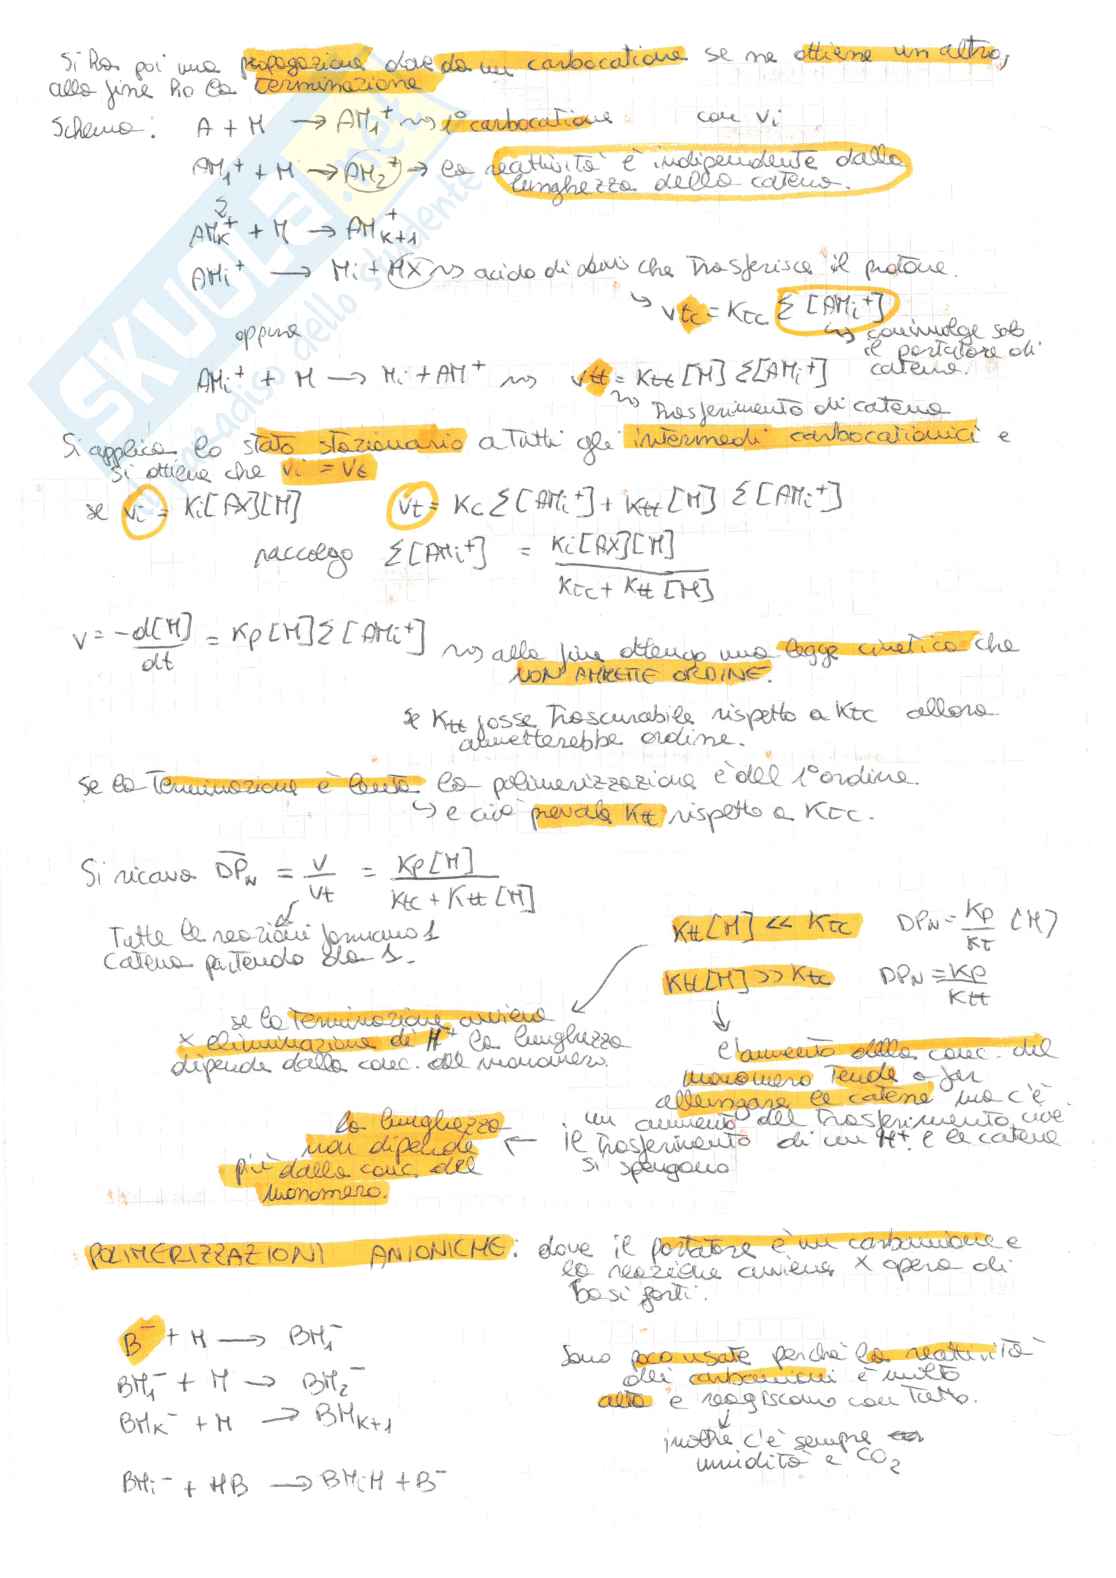 Si ha poi una propagazione dove da un carbocatione se ne ottiene un altro,
alla fine ho la terminazione
Schema: A + M → AM₁⁺ ⇝ 1° carbocatione con vi
AM₁⁺ + M → AM₂⁺ → la reattività è indipendente dalla
lunghezza della catena.
AMK⁺ + M → AMK+1⁺
AMi⁺ → Mi + HX ⇝ acido di Lewis che trasferisce il protone.
↳ vtc = Ktc Σ [AMi⁺]
↳ coinvolge solo
il portatore di
catena.
oppure
AMi⁺ + M → Mi + AM⁺ ⇝ vtt = Ktt [M] Σ[AMi⁺]
⇝ trasferimento di catena
Si applica lo stato stazionario a tutti gli intermedi carbocationici e
si ottiene che vi = vt
se vi = Ki[AX][M] vt = Kc Σ[AMi⁺] + Ktt [M] Σ[AMi⁺]
raccolgo Σ[AMi⁺] = Ki[AX][M] / Ktc + Ktt [M]
v = -d[M]/dt = Kp[M] Σ[AMi⁺] ⇝ alla fine ottengo una legge cinetica che
NON AMMETTE ORDINE.
se Ktt fosse trascurabile rispetto a Ktc allora
ammetterebbe ordine.
Se la terminazione è lenta la polimerizzazione è del 1° ordine.
↳ e cioè prevale Ktt rispetto a Ktc.
Si ricava DPN = v/vt = Kp[M] / Ktc + Ktt [M]
Tutte le reazioni formano 1
catena partendo da 1.
Ktt[M] << Ktc DPN = Kp/Kt [M]
Ktt[M] >> Ktc DPN = Kp/Ktt
se la terminazione avviene
x eliminazione di H⁺ la lunghezza
dipende dalla conc. del monomero.
l'aumento della conc. del
monomero tende a far
allungare le catene ma c'è
un aumento del trasferimento, cioè
il trasferimento di un H⁺ e le catene
si spengono
la lunghezza
non dipende
più dalla conc. del
monomero.
POLIMERIZZAZIONI ANIONICHE: dove il portatore è un carbanione e
la reazione avviene x opera di
basi forti.
B⁻ + M → BM₁⁻
BM₁⁻ + M → BM₂⁻
BMK⁻ + M → BMK+1
BMi⁻ + HB → BMiH + B⁻
Sono poco usate perché la reattività
dei carbanioni è molto
alta e reagiscono con tutto.
inoltre c'è sempre
umidità e CO₂
SKUOLA.net
il paradiso dello studente